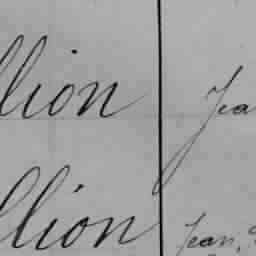 llion Jea
llion Jean,